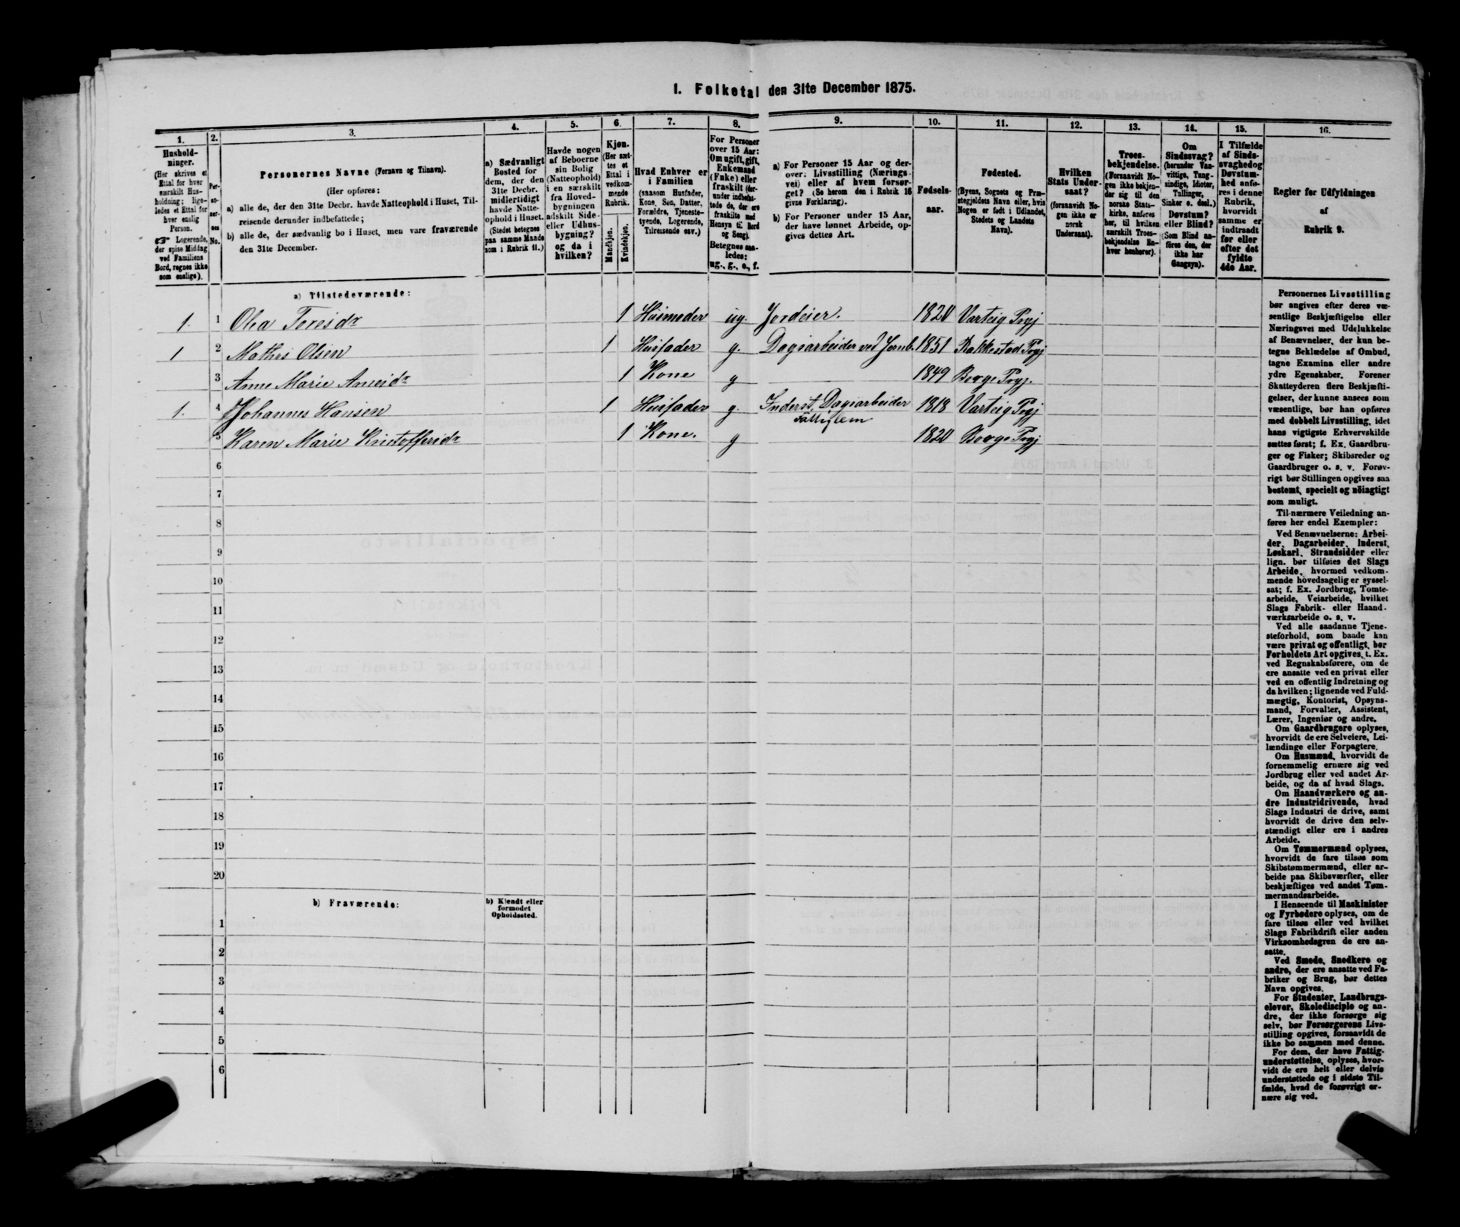 I. Folketal den 31te December 1875.
1. 2. 3. 4. 5. 6. 7. 8. 9. 10. 11. 12. 13. 14. 15. 16.
Hushold-
ninger.
(Her skrives et
Ettal for hver
særskilt Hus-
holdning; lige-
ledes et Ettal for
hver enslig
Person.
☞ Logerende,
der spise Middag
ved Familiens
Bord, regnes ikke
som enslige).
Per-
so-
ner-
nes
No.
Personernes Navne (Fornavn og Tilnavn).
(Her opføres:
a) alle de, der den 31te Decbr. havde Natteophold i Huset, Til-
reisende derunder indbefattede;
b) alle de, der sædvanlig bo i Huset, men vare fraværende
den 31te December.
a) Sædvanligt
Bosted for
dem, der den
31te Decbr.
midlertidigt
havde Natte-
ophold i Huset.
(Stedet betegnes
paa samme Maade
som i Rubrik 11.)
Havde nogen
af Beboerne
sin Bolig
(Natteophold)
i en særskilt
fra Hoved-
bygningen
adskilt Side-
eller Udhus-
bygning?
og da i
hvilken?
Kjøn.
(Her sæt-
tes et
Ettal i
vedkom-
mende
Rubrik.
Mandkjøn.
Kvindekjøn.
Hvad Enhver er
i Familien
(saasom Husfader,
Kone, Søn, Datter,
Forældre, Tjeneste-
tyende, Logerende,
Tilreisende osv.)
For Personer
over 15 Aar:
Om ugift, gift,
Enkemand
(Enke) eller
fraskilt (der-
under indbefat-
tede de, der ere
fraskilte med
Hensyn til Bord
og Seng).
Betegnes saa-
ledes:
ug., g., e., f.
a) For Personer 15 Aar og der-
over: Livsstilling (Nærings-
vei) eller af hvem forsør-
get? (Se herom den i Rubrik 16
givne Forklaring).
b) For Personer under 15 Aar,
der have lønnet Arbeide, op-
gives dettes Art.
Fødsels-
aar.
Fødested.
(Byens, Sognets og Præ-
stegjeldets Navn eller, hvis
Nogen er født i Udlandet,
Stedets og Landets
Navn).
Hvilken
Stats Under-
saat?
(forsaavidt No-
gen ikke er
norsk
Undersaat).
Troes-
bekjendelse.
(Forsaavidt No-
gen ikke bekjen-
der sig til den
norske Stats-
kirke, anføres
her, til hvilken
særskilt Troes-
bekjendelse En-
hver henhører).
Om
Sindssvag?
(herunder Van-
vittige, Tung-
sindige, Idioter,
Tullinger,
Sinker o. desl.)
Døvstum?
eller Blind?
(Som Blind an-
føres den, der
ikke har
Gangsyn).
I Tilfælde
af Sinds-
svaghed og
Døvstum-
hed anfø-
res i denne
Rubrik,
hvorvidt
samme er
indtraadt
før eller
efter det
fyldte
4de Aar.
Regler for Udfyldningen
af
Rubrik 9.
a) Tilstedeværende:
1. 1 Olea Toresdr 1 Huusmoder ug. Jordeier. 1820 Varteig Prgj
1 2 Mathis Olsen 1 Huusfader g. Dagsarbeider ved Jernb. 1851 Rakkestad Prgj
3 Anne Marie Arnesdr 1 Kone g 1849 Borge Prgj.
1. 4 Johannes Hansen 1 Huusfader g. Inderst, Dagsarbeider 1818 Varteig Prgj
Fattiglem
5 Karen Marie Kristoffersdr 1 Kone. g 1820 Borge Prgj
6
7
8
9
10
11
12
13
14
15
16
17
18
19
20
b) Fraværende:
b) Kjendt eller
formodet
Opholdssted.
1
2
3
4
5
6
Personernes Livsstilling
bør angives efter deres væ-
sentlige Beskjæftigelse eller
Næringsvei med Udelukkelse
af Benævnelser, der kun be-
tegne Beklædelse af Ombud,
tagne Examina eller andre
ydre Egenskaber. Forener
Skatteyderen flere Beskjæfti-
gelser, der kunne ansees som
væsentlige, bør han opføres
med dobbelt Livsstilling, idet
hans vigtigste Erhvervskilde
sættes først; f. Ex. Gaardbru-
ger og Fisker; Skibsreder og
Gaardbruger o. s. v. Forøv-
rigt bør Stillingen opgives saa
bestemt, specielt og nöiagtigt
som muligt.
Til nærmere Veiledning an-
føres her endel Exempler:
Ved Benævnelserne: Arbei-
der, Dagarbeider, Inderst,
Løskarl, Strandsidder eller
lign. bør tilføies det Slags
Arbeide, hvormed vedkom-
mende hovedsagelig er syssel-
sat; f. Ex. Jordbrug, Tomte-
arbeide, Veiarbeide, hvilket
Slags Fabrik- eller Haand-
værksarbeide o. s. v.
Ved alle saadanne Tjene-
steforhold, som baade kan
være privat og offentligt, bør
Forholdets Art opgives, t. Ex.
ved Regnskabsførere, om de
ere ansatte ved en privat eller
ved en offentlig Indretning og
da hvilken; lignende ved Fuld-
mægtig, Kontorist, Opsyns-
mand, Forvalter, Assistent,
Lærer, Ingeniør og andre.
Om Gaardbrugere oplyses,
hvorvidt de ere Selveiere, Lei-
lændinge eller Forpagtere.
Om Husmænd, hvorvidt de
fornemmelig ernære sig ved
Jordbrug eller ved andet Ar-
beide, og da af hvad Slags.
Om Haandværkere og an-
dre Industridrivende, hvad
Slags Industri de drive, samt
hvorvidt de drive den selv-
stændigt eller ere i andres
Arbeide.
Om Tømmermænd oplyses,
hvorvidt de fare tilsøs som
Skibstømmermænd, eller ar-
beide paa Skibsværfter, eller
beskjæftiges ved andet Tøm-
mermandsarbeide.
I Henseende til Maskinister
og Fyrbødere oplyses, om de
fare tilsøs eller ved hvilket
Slags Fabrikdrift eller anden
Virksomhedsgren de ere an-
satte.
Ved Smede, Snedkere og
andre, der ere ansatte ved Fa-
briker og Brug, bør dettes
Navn opgives.
For Studenter, Landbrugs-
elever, Skoledisciple og an-
dre, der ikke forsørge sig
selv, bør Forsørgerens Livs-
stilling opgives, forsaavidt de
ikke bo sammen med denne.
For dem, der have Fattig-
understøttelse, oplyses, hvor-
vidt de ere helt eller delvis
understøttede og i sidste Til-
fælde, hvad de forøvrigt er-
nære sig ved.